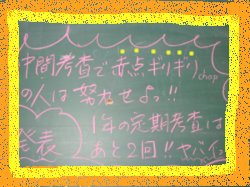 中間考査で赤点ギリギリ
の人は努力せよっ!!
1年の定期考査は
あと2回!!ヤバイ
発表
chop